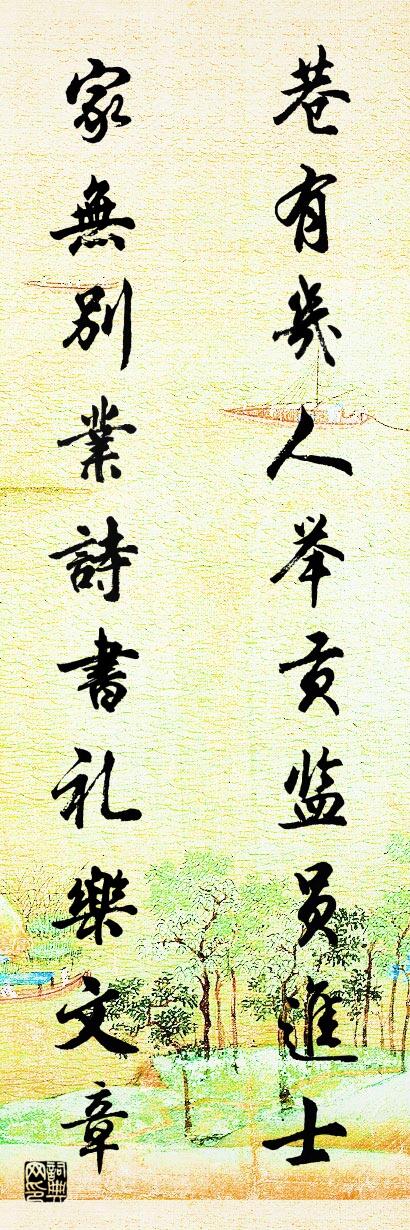 巷有幾人举贡监员進士
家無别業詩書礼樂文章
詞典網印